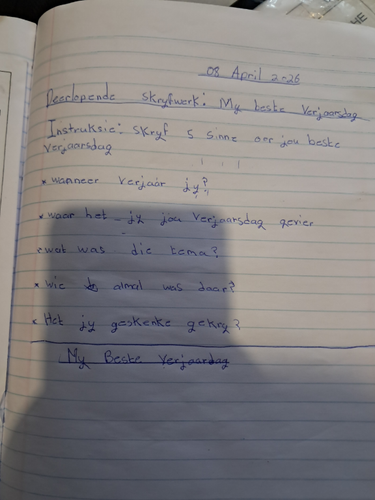 08 April 2026
Deurlopende skryfwerk: My beste Verjaarsdag
Instruksie: skryf 5 sinne oor jou beste
verjaarsdag
* wanneer verjaar jy?
* waar het jy jou verjaarsdag gevier
* wat was die tema?
* wie almal was daar?
* Het jy geskenke gekry?
My Beste Verjaardag